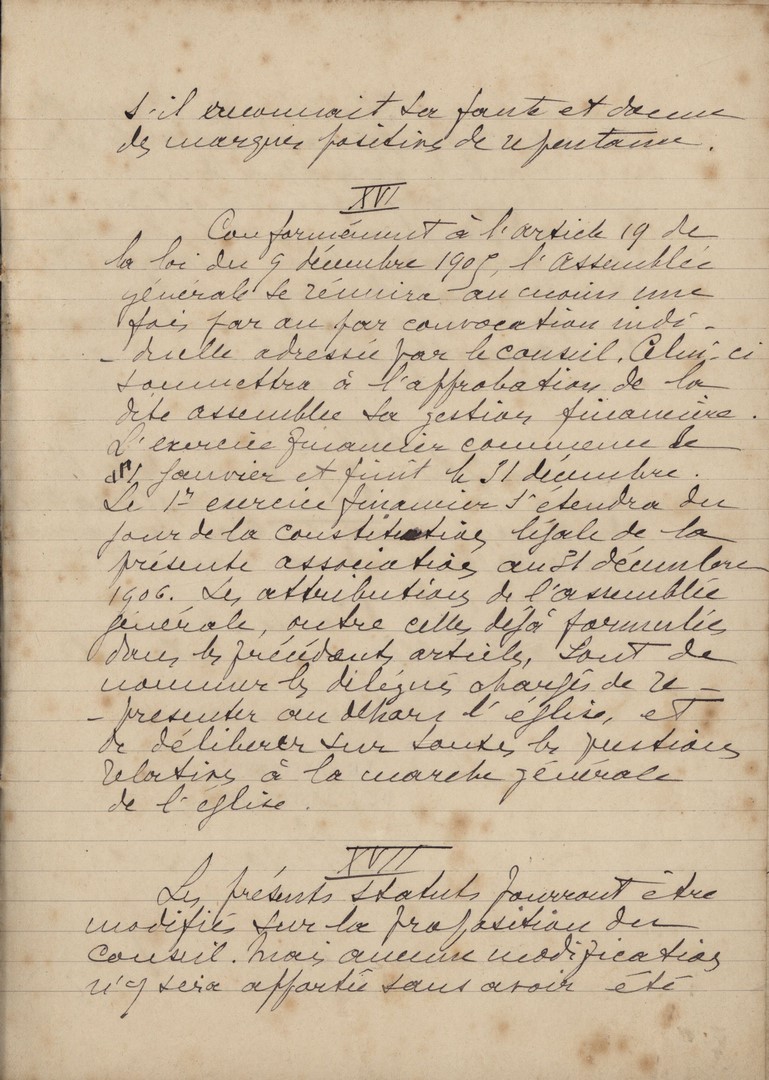 s'il reconnait sa faute et donne
des marques positives de repentance.
XVI
Conformément à l'article 19 de
la loi du 9 décembre 1905, l'Assemblée
générale se réunira au moins une
fois par an par convocation indi-
-duelle adressée par le conseil. Celui-ci
soumettra à l'approbation de la
dite assemblée sa gestion financière.
L'exercice financier commence le
1er janvier et finit le 31 décembre.
Le 1er exercice financier s'étendra du
jour de la constitution légale de la
présente association au 31 décembre
1906. Les attributions de l'assemblée
générale, outre celles déjà formulées
dans les précédents articles, sont de
nommer les délégués chargés de re-
-présenter au dehors l'église, et
de délibérer sur toutes les questions
relatives à la marche générale
de l'église.
XVII
Les présents statuts pourront être
modifiés sur la proposition du
Conseil. Mais aucune modification
n'y sera apportée sans avoir été